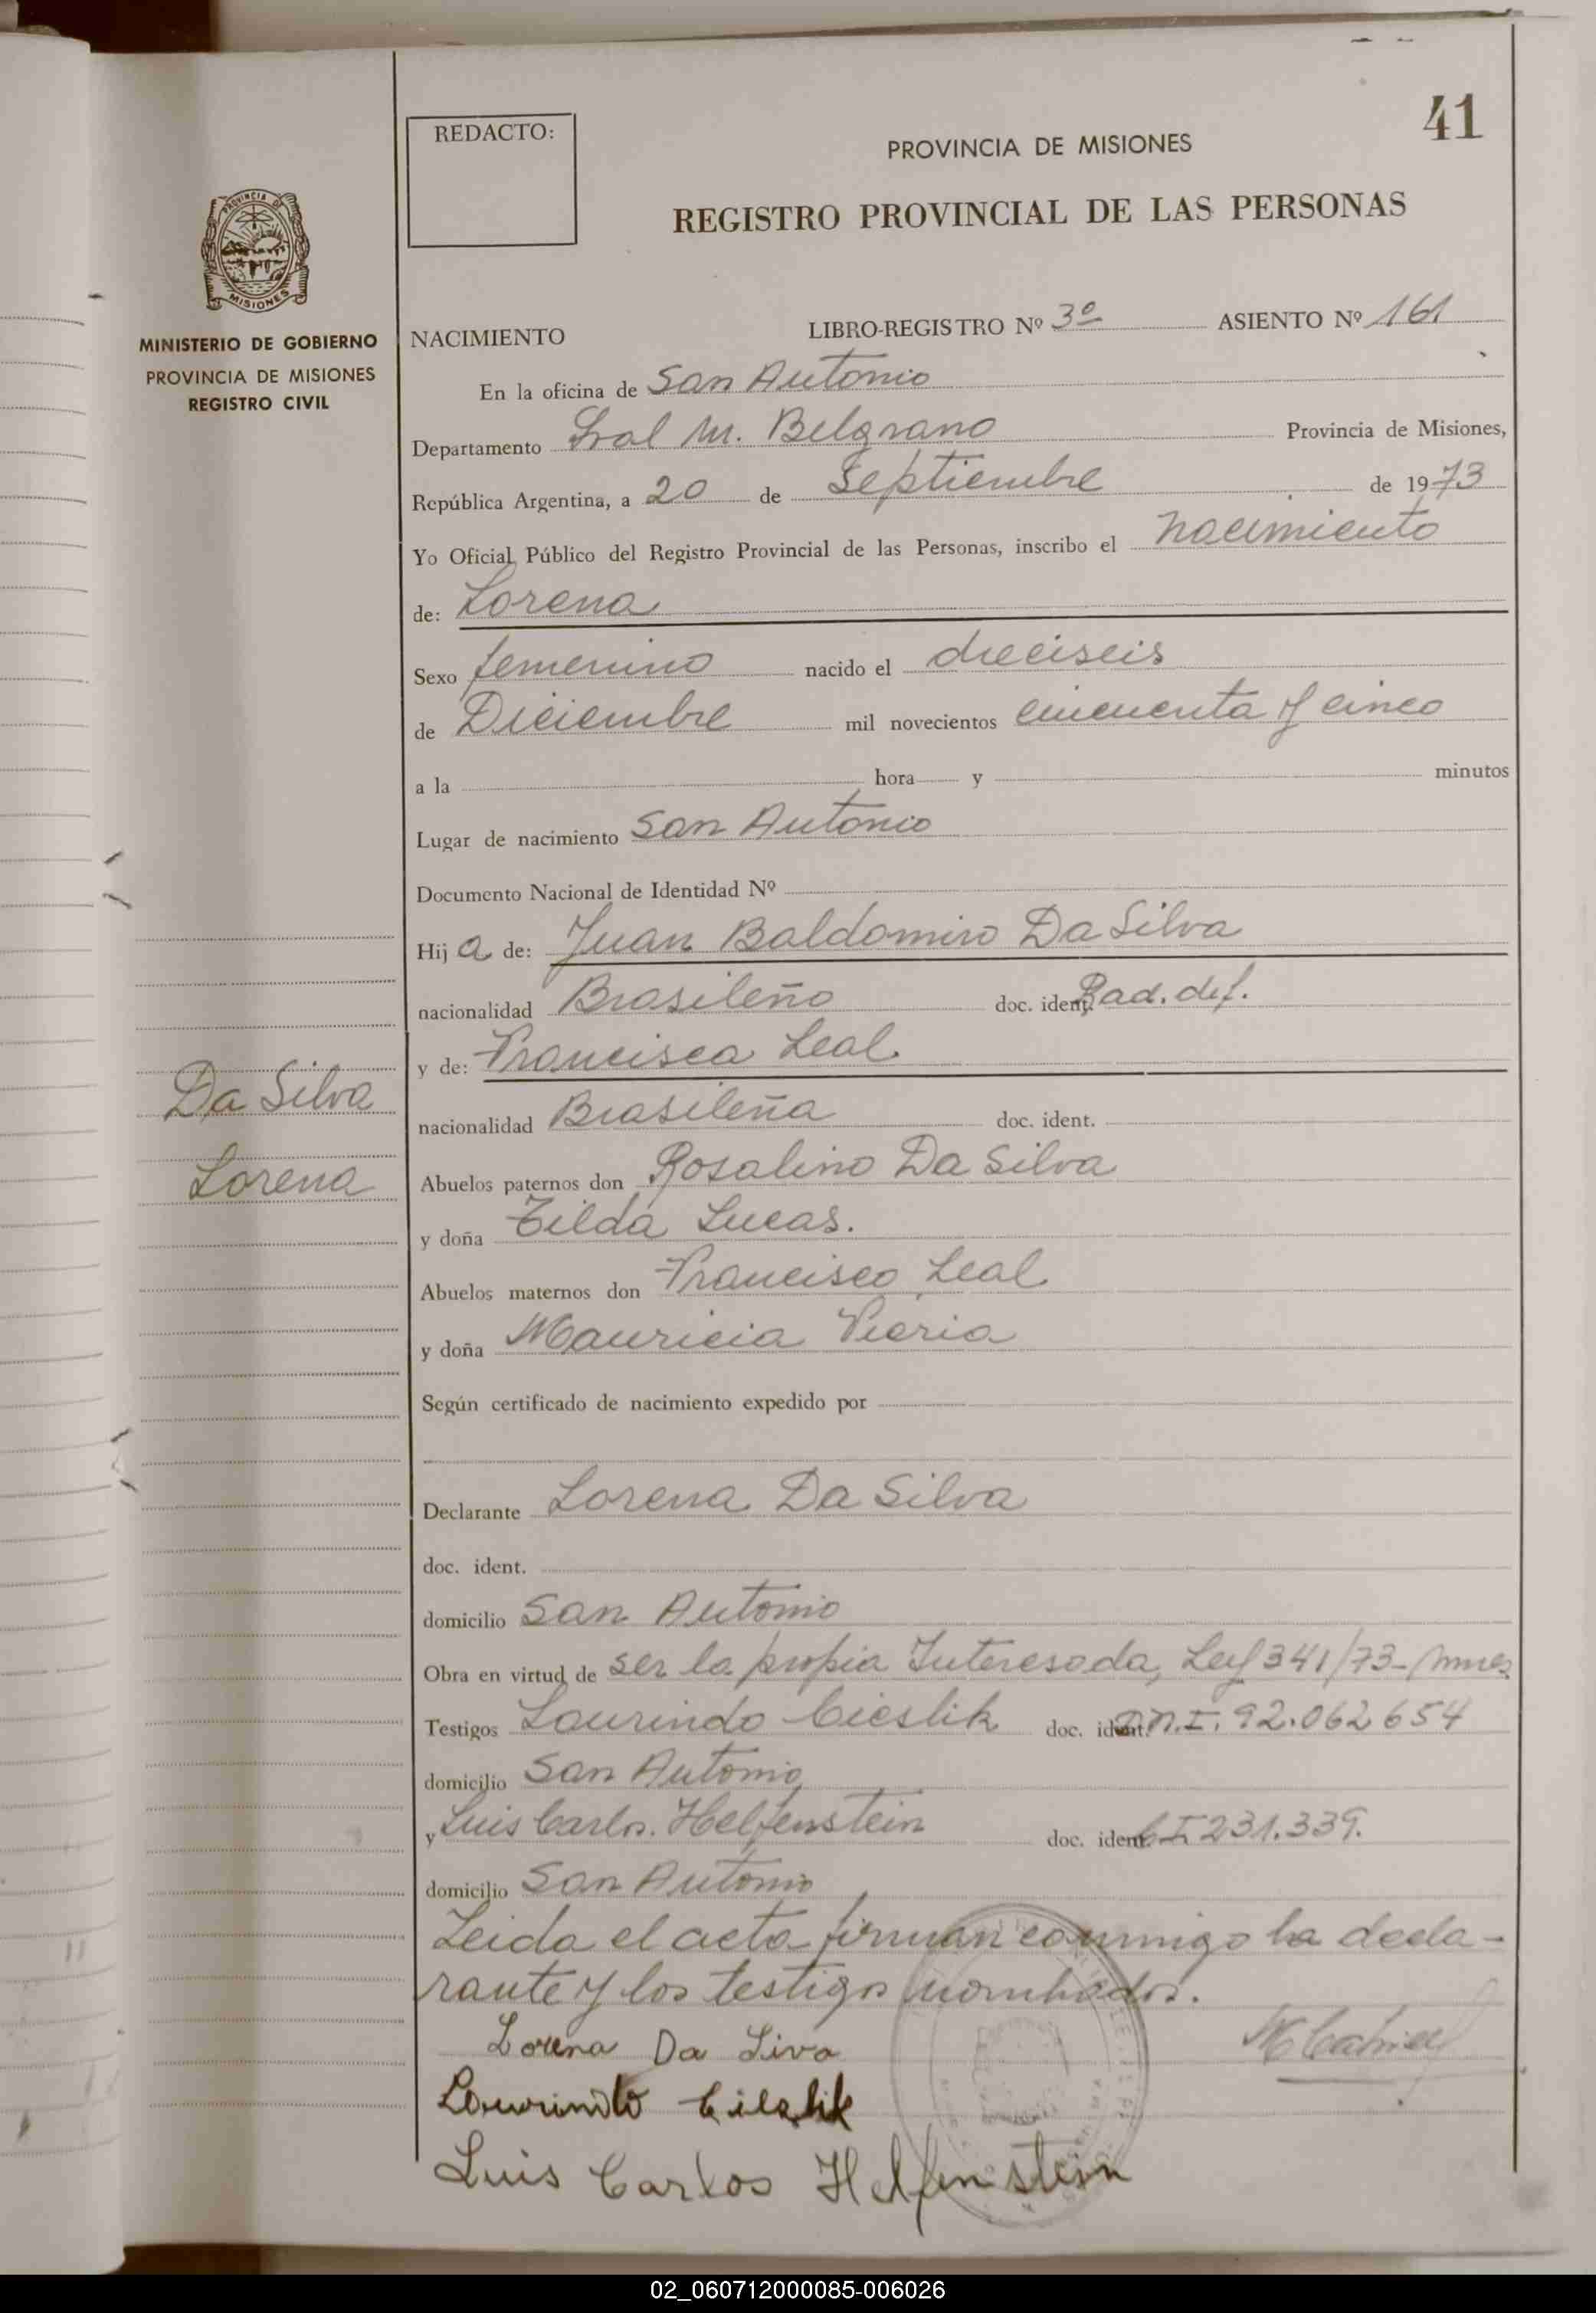 41
REDACTO:
PROVINCIA DE MISIONES
REGISTRO PROVINCIAL DE LAS PERSONAS
PROVINCIA DE
MISIONES
MINISTERIO DE GOBIERNO
PROVINCIA DE MISIONES
REGISTRO CIVIL
NACIMIENTO LIBRO-REGISTRO Nº 3º ASIENTO Nº 161
En la oficina de San Antonio
Departamento Gral M. Belgrano Provincia de Misiones,
República Argentina, a 20 de Septiembre de 1973
Yo Oficial Público del Registro Provincial de las Personas, inscribo el nacimiento
de: Lorena
Sexo femenino nacido el dieciseis
de Diciembre mil novecientos cincuenta y cinco
a la hora y minutos
Lugar de nacimiento San Antonio
Documento Nacional de Identidad Nº
Hij a de: Juan Baldomiro Da Silva
nacionalidad Brasileño doc. ident. Rad. def.
y de: Francisca Leal
Da Silva
nacionalidad Brasileña doc. ident.
Lorena
Abuelos paternos don Rosalino Da Silva
y doña Tilda Lucas.
Abuelos maternos don Francisco Leal
y doña Mauricia Vieria
Según certificado de nacimiento expedido por
Declarante Lorena Da Silva
doc. ident.
domicilio San Antonio
Obra en virtud de ser la propia Interesada, Ley 341/73-
Testigos Laurindo Cieslik doc. ident. D.N.I. 92.062654
domicilio San Antonio
y Luis Carlos Helfenstein doc. ident. C.I 231.339.
domicilio San Antonio
Leida el acta firman conmigo la decla-
rante y los testigos nombrados.
Lorena Da Siva
Lourindo Cieslik
Luis Carlos Helfenstein
02_060712000085-006026